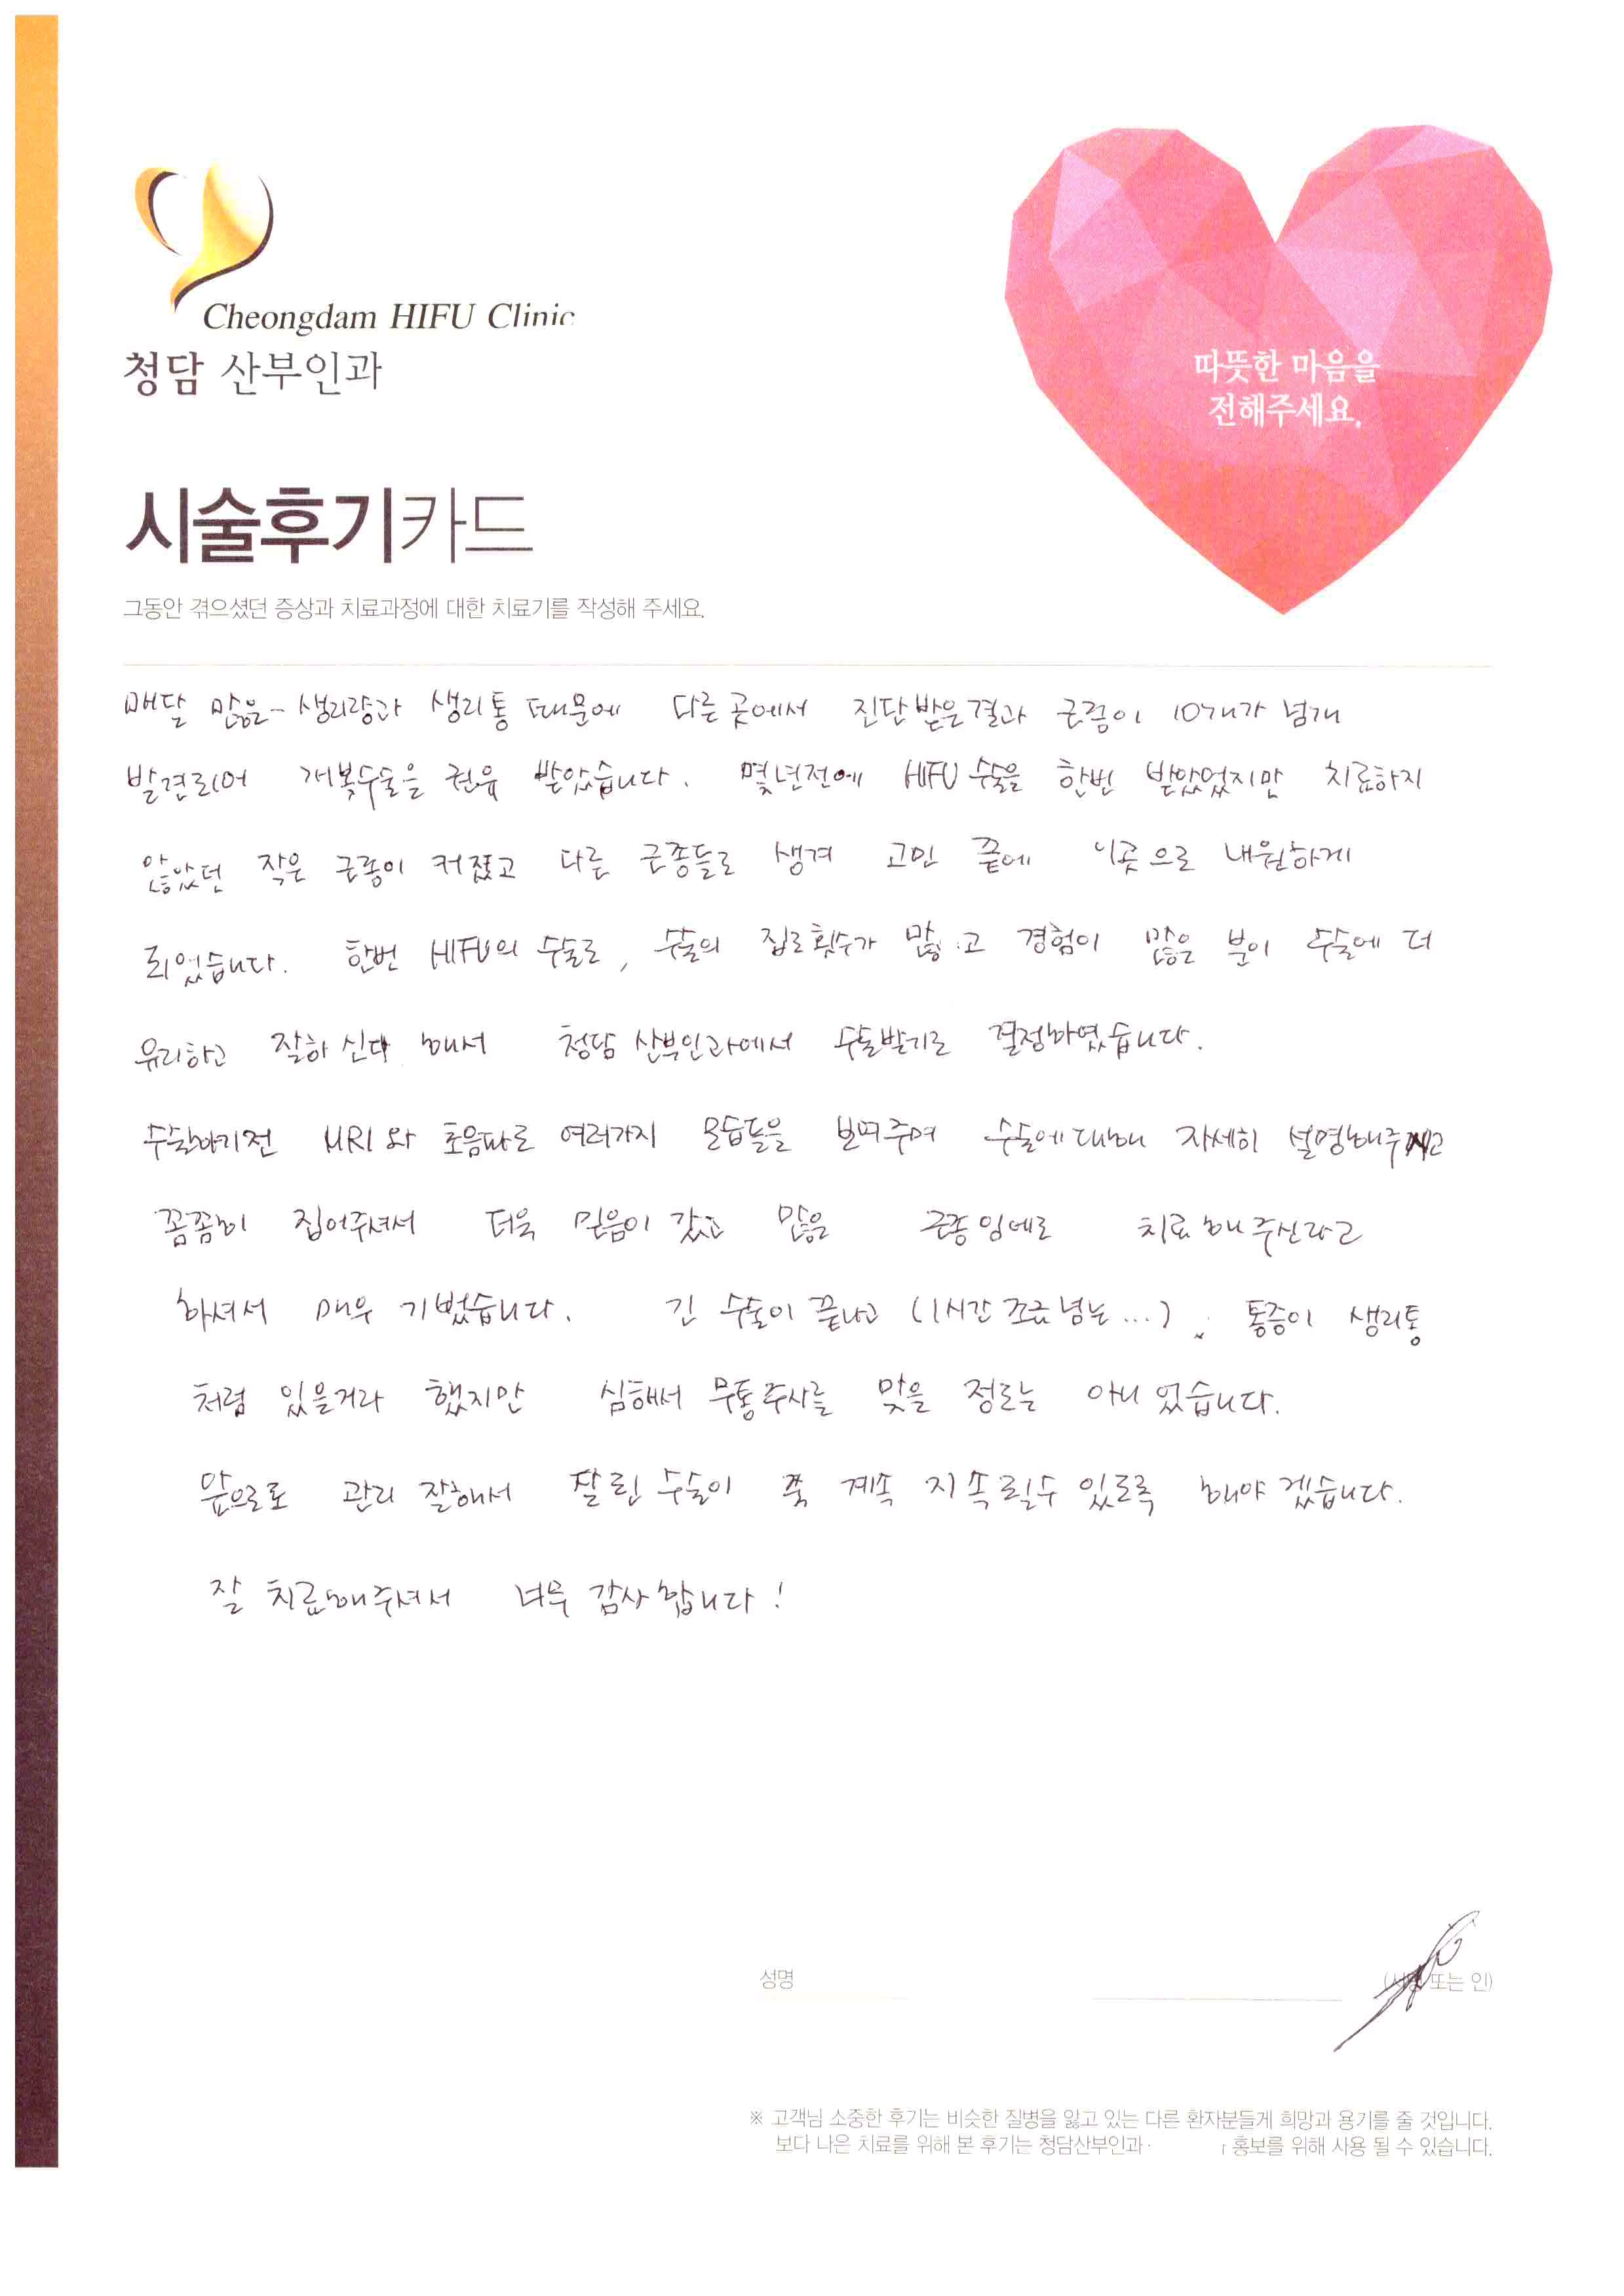 Cheongdam HIFU Clinic
청담 산부인과
따뜻한 마음을
전해주세요.
시술후기카드
그동안 겪으셨던 증상과 치료과정에 대한 치료기를 작성해 주세요.
매달 많은 생리량과 생리통 때문에 다른 곳에서 진단받은결과 근종이 10개가 넘게
발견되어 개복수술을 권유 받았습니다. 몇년전에 HIFU 수술을 한번 받았었지만 치료하지
않았던 작은 근종이 커졌고 다른 근종들도 생겨 고민 끝에 이곳으로 내원하게
되었습니다. 한번 HIFU의 수술로, 수술의 집도횟수가 많고 경험이 많은 분이 수술에 더
유리하고 잘하신다 해서 청담 산부인과에서 수술받기로 결정하였습니다.
수술하기전 MRI와 초음파로 여러가지 모습들을 보여주며 수술에대해 자세히 설명해주시고
꼼꼼히 집어주셔서 더욱 믿음이 갔고 많은 근종임에도 치료해주신라고
하셔서 매우 기뻤습니다. 긴 수술이 끝나고 (1시간 조금넘는...) 통증이 생리통
처럼 있을거라 했지만 심해서 무통주사를 맞을 정도는 아니었습니다.
앞으로도 관리 잘해서 잘된 수술이 쭉 계속 지속될수 있도록 해야겠습니다.
잘 치료해주셔서 너무 감사합니다!
성명
또는 인)
※ 고객님 소중한 후기는 비슷한 질병을 앓고 있는 다른 환자분들게 희망과 용기를 줄 것입니다.
보다 나은 치료를 위해 본 후기는 청담산부인과 홍보를 위해 사용 될 수 있습니다.